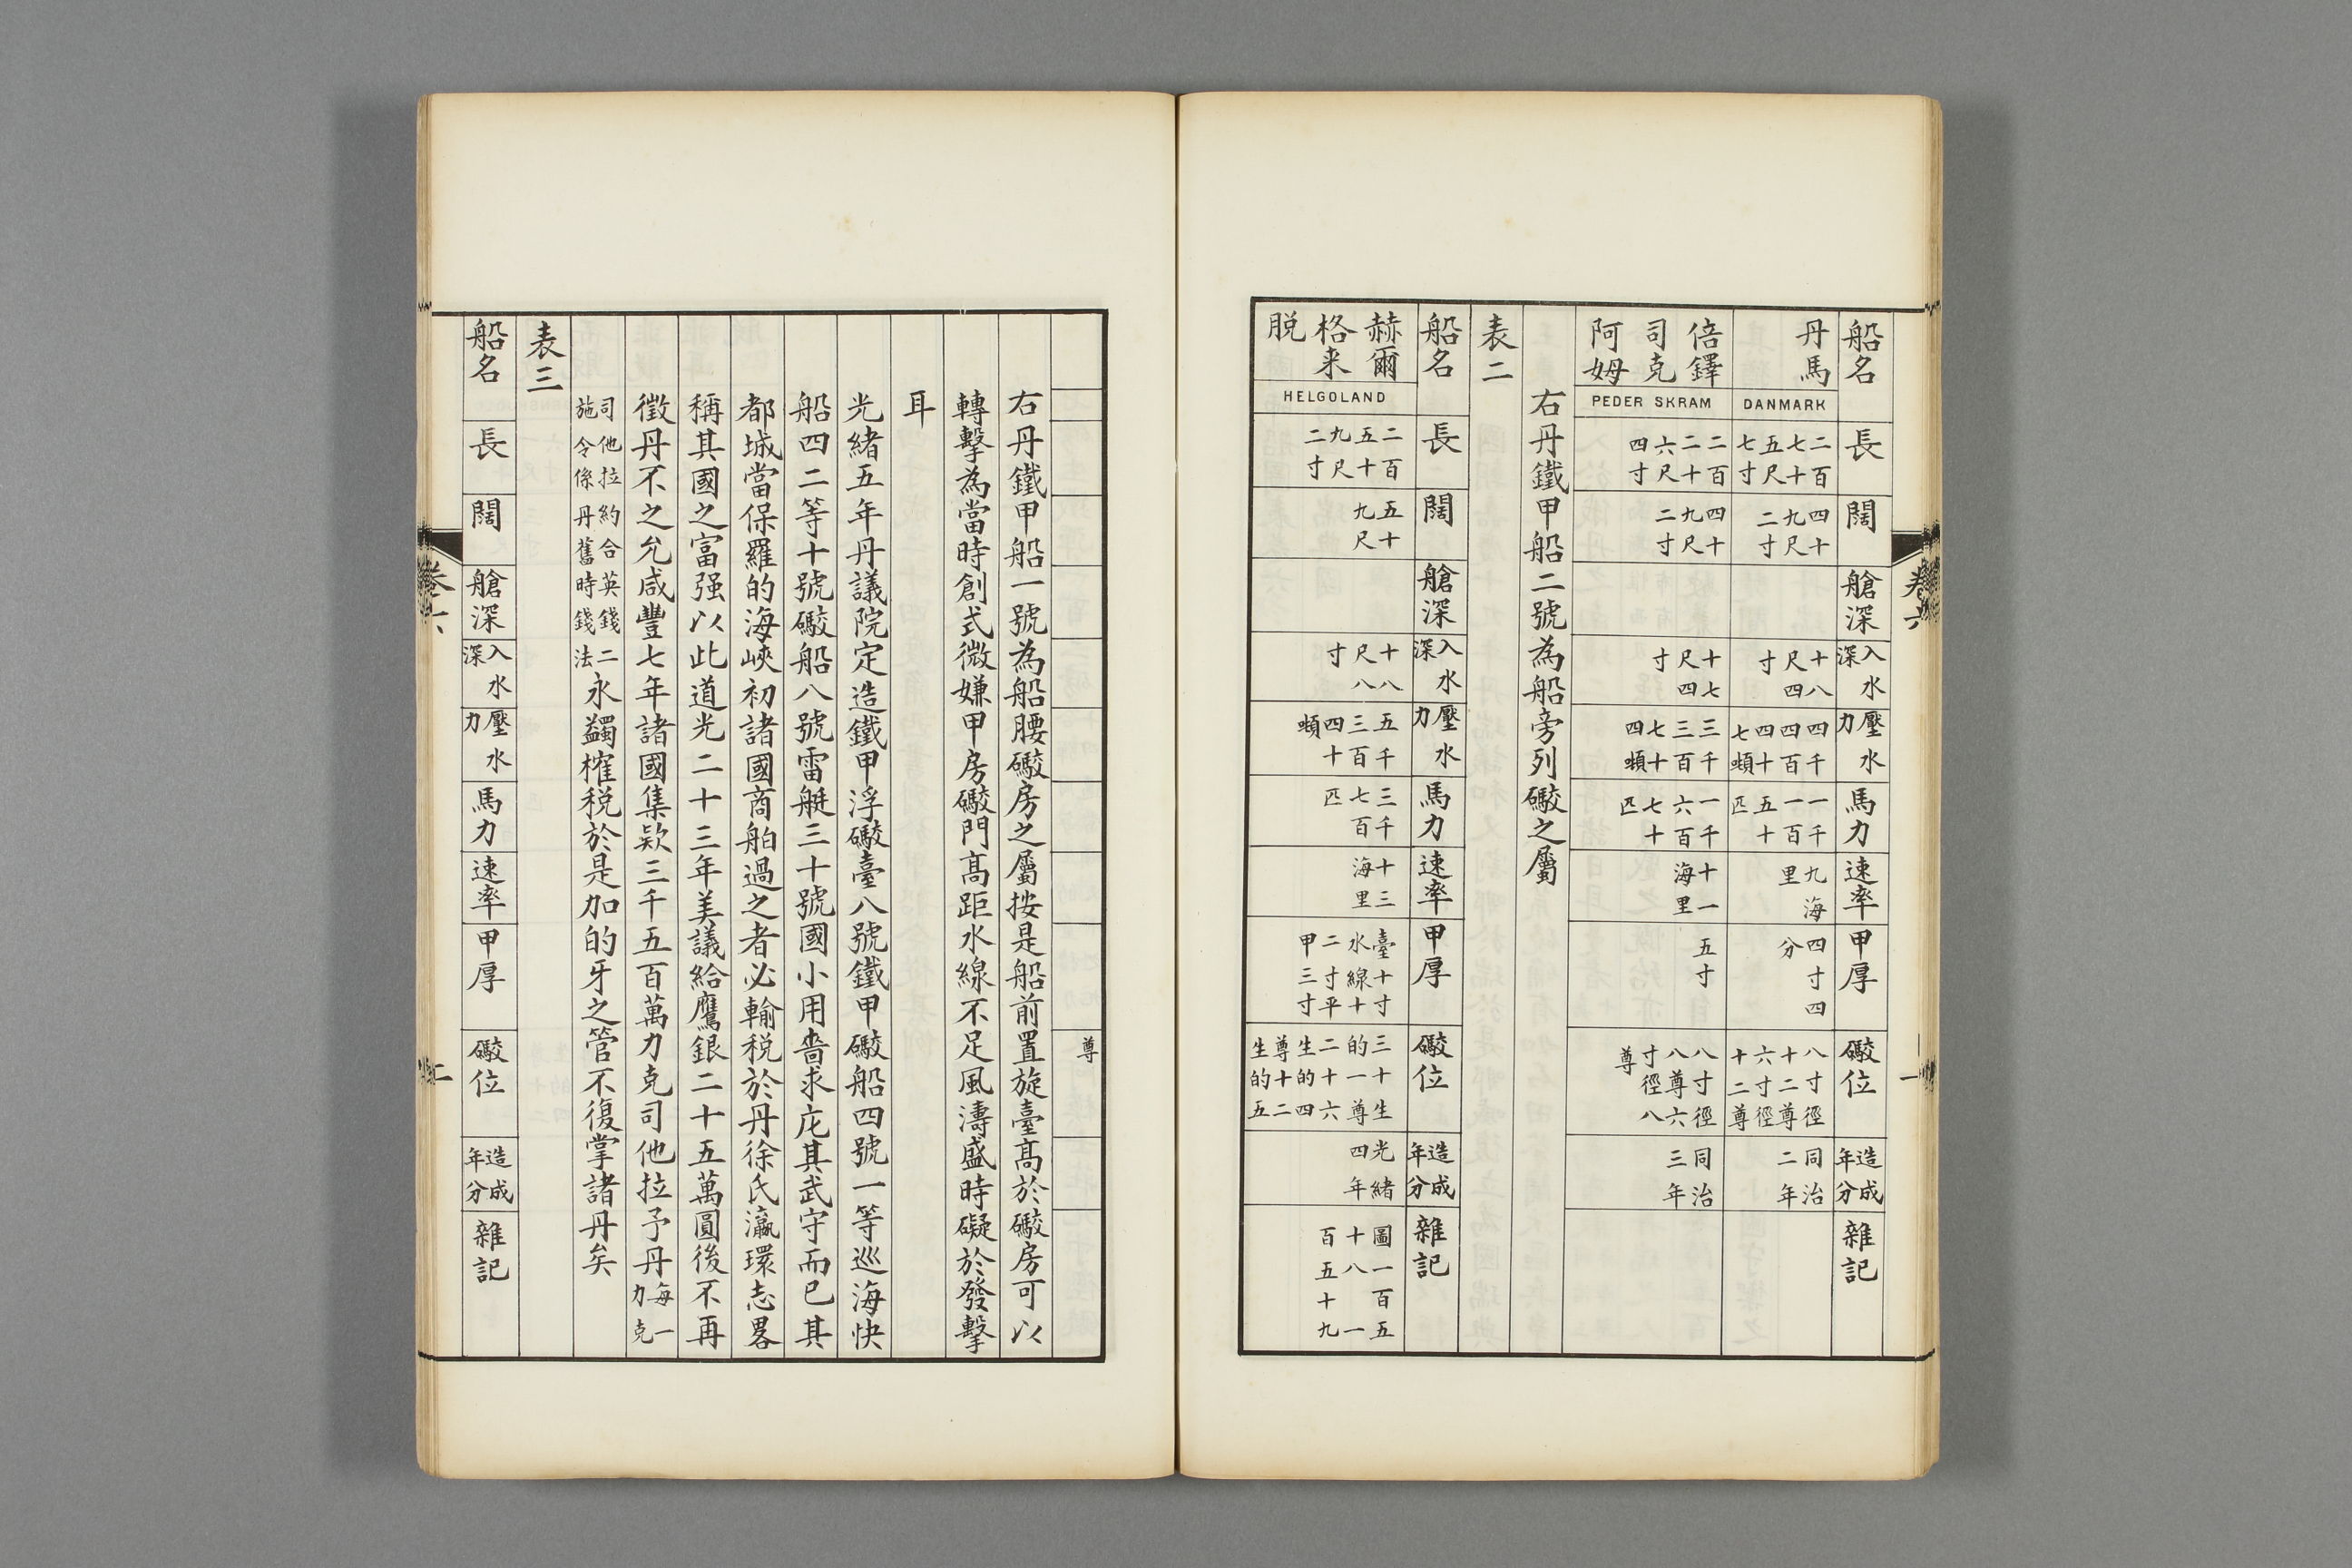 船名
長
闊
艙深
入水深
壓水力
馬力
速率
甲厚
礮位
造成年分
雜記
丹馬
DANMARK
二百七十五尺七寸
四十九尺二寸
十八尺四寸
四千四百四十七噸
一千一百五十匹
九海里
四寸四分
八寸徑十二尊六寸徑十二尊
同治二年
倍鐸司克阿姆
PEDER SKRAM
二百二十六尺四寸
四十九尺二寸
十七尺四寸
三千三百七十四噸
一千六百七十匹
十一海里
五寸
八寸徑八尊六寸徑八尊
同治三年
右丹鐵甲船二號為船旁列礮之屬
表二
船名
長
闊
艙深
入水深
壓水力
馬力
速率
甲厚
礮位
造成年分
雜記
赫爾格来脱
HELGOLAND
二百五十九尺二寸
五十九尺
十八尺八寸
五千三百四十噸
三千七百匹
十三海里
臺十寸水線十二寸平甲三寸
三十生的一尊二十六生的四尊十二生的五
尊
光緒四年
圖一百五十八一百五十九
右丹鐵甲船一號為船腰礮房之屬按是船前置旋臺高於礮房可以
轉擊為當時創式微嫌甲房礮門高距水線不足風濤盛時礙於發擊
耳
光緒五年丹議院定造鐵甲浮礮臺八號鐵甲礮船四號一等巡海快
船四二等十號礮船八號雷艇三十號國小用嗇求庀其武守而已其
都城當保羅的海峽初諸國商舶過之者必輸税於丹徐氏瀛環志畧
稱其國之富强以此道光二十三年美議給鷹銀二十五萬圓後不再
徵丹不之允咸豐七年諸國集欵三千五百萬力克司他拉予丹每一力克
司他拉約合英錢二施令係丹舊時錢法永蠲榷税於是加的牙之管不復掌諸丹矣
表三
船名
長
闊
艙深
入水深
壓水力
馬力
速率
甲厚
礮位
造成年分
雜記
卷六
一
卷六
二